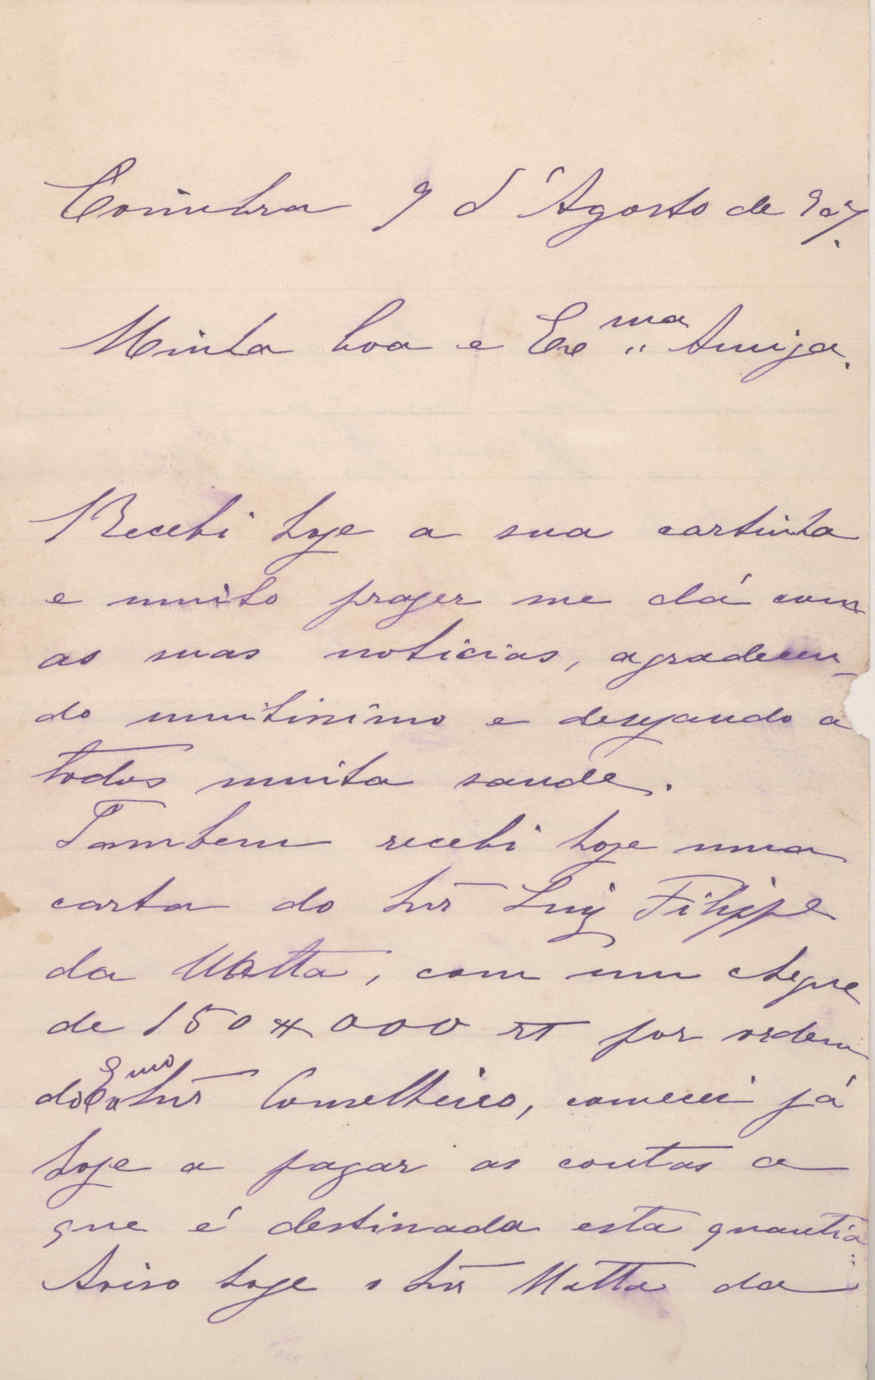 Coimbra 9 d'Agosto de 907.
Minha boa e Exma Amiga.
Recebi hoje a sua cartinha
e muito prazer me dá com
as suas noticias, agradecen-
do muitissimo e desejando a
todos muita saude.
Tambem recebi hoje uma
carta do Snr Luiz Filippe
da Matta, com um cheque
de 150#000 rs por ordem
do Exmo Snr Conselheiro, comecei já
hoje a pagar as contas a
que é destinada esta quantia
Aviso hoje o Snr Matta da